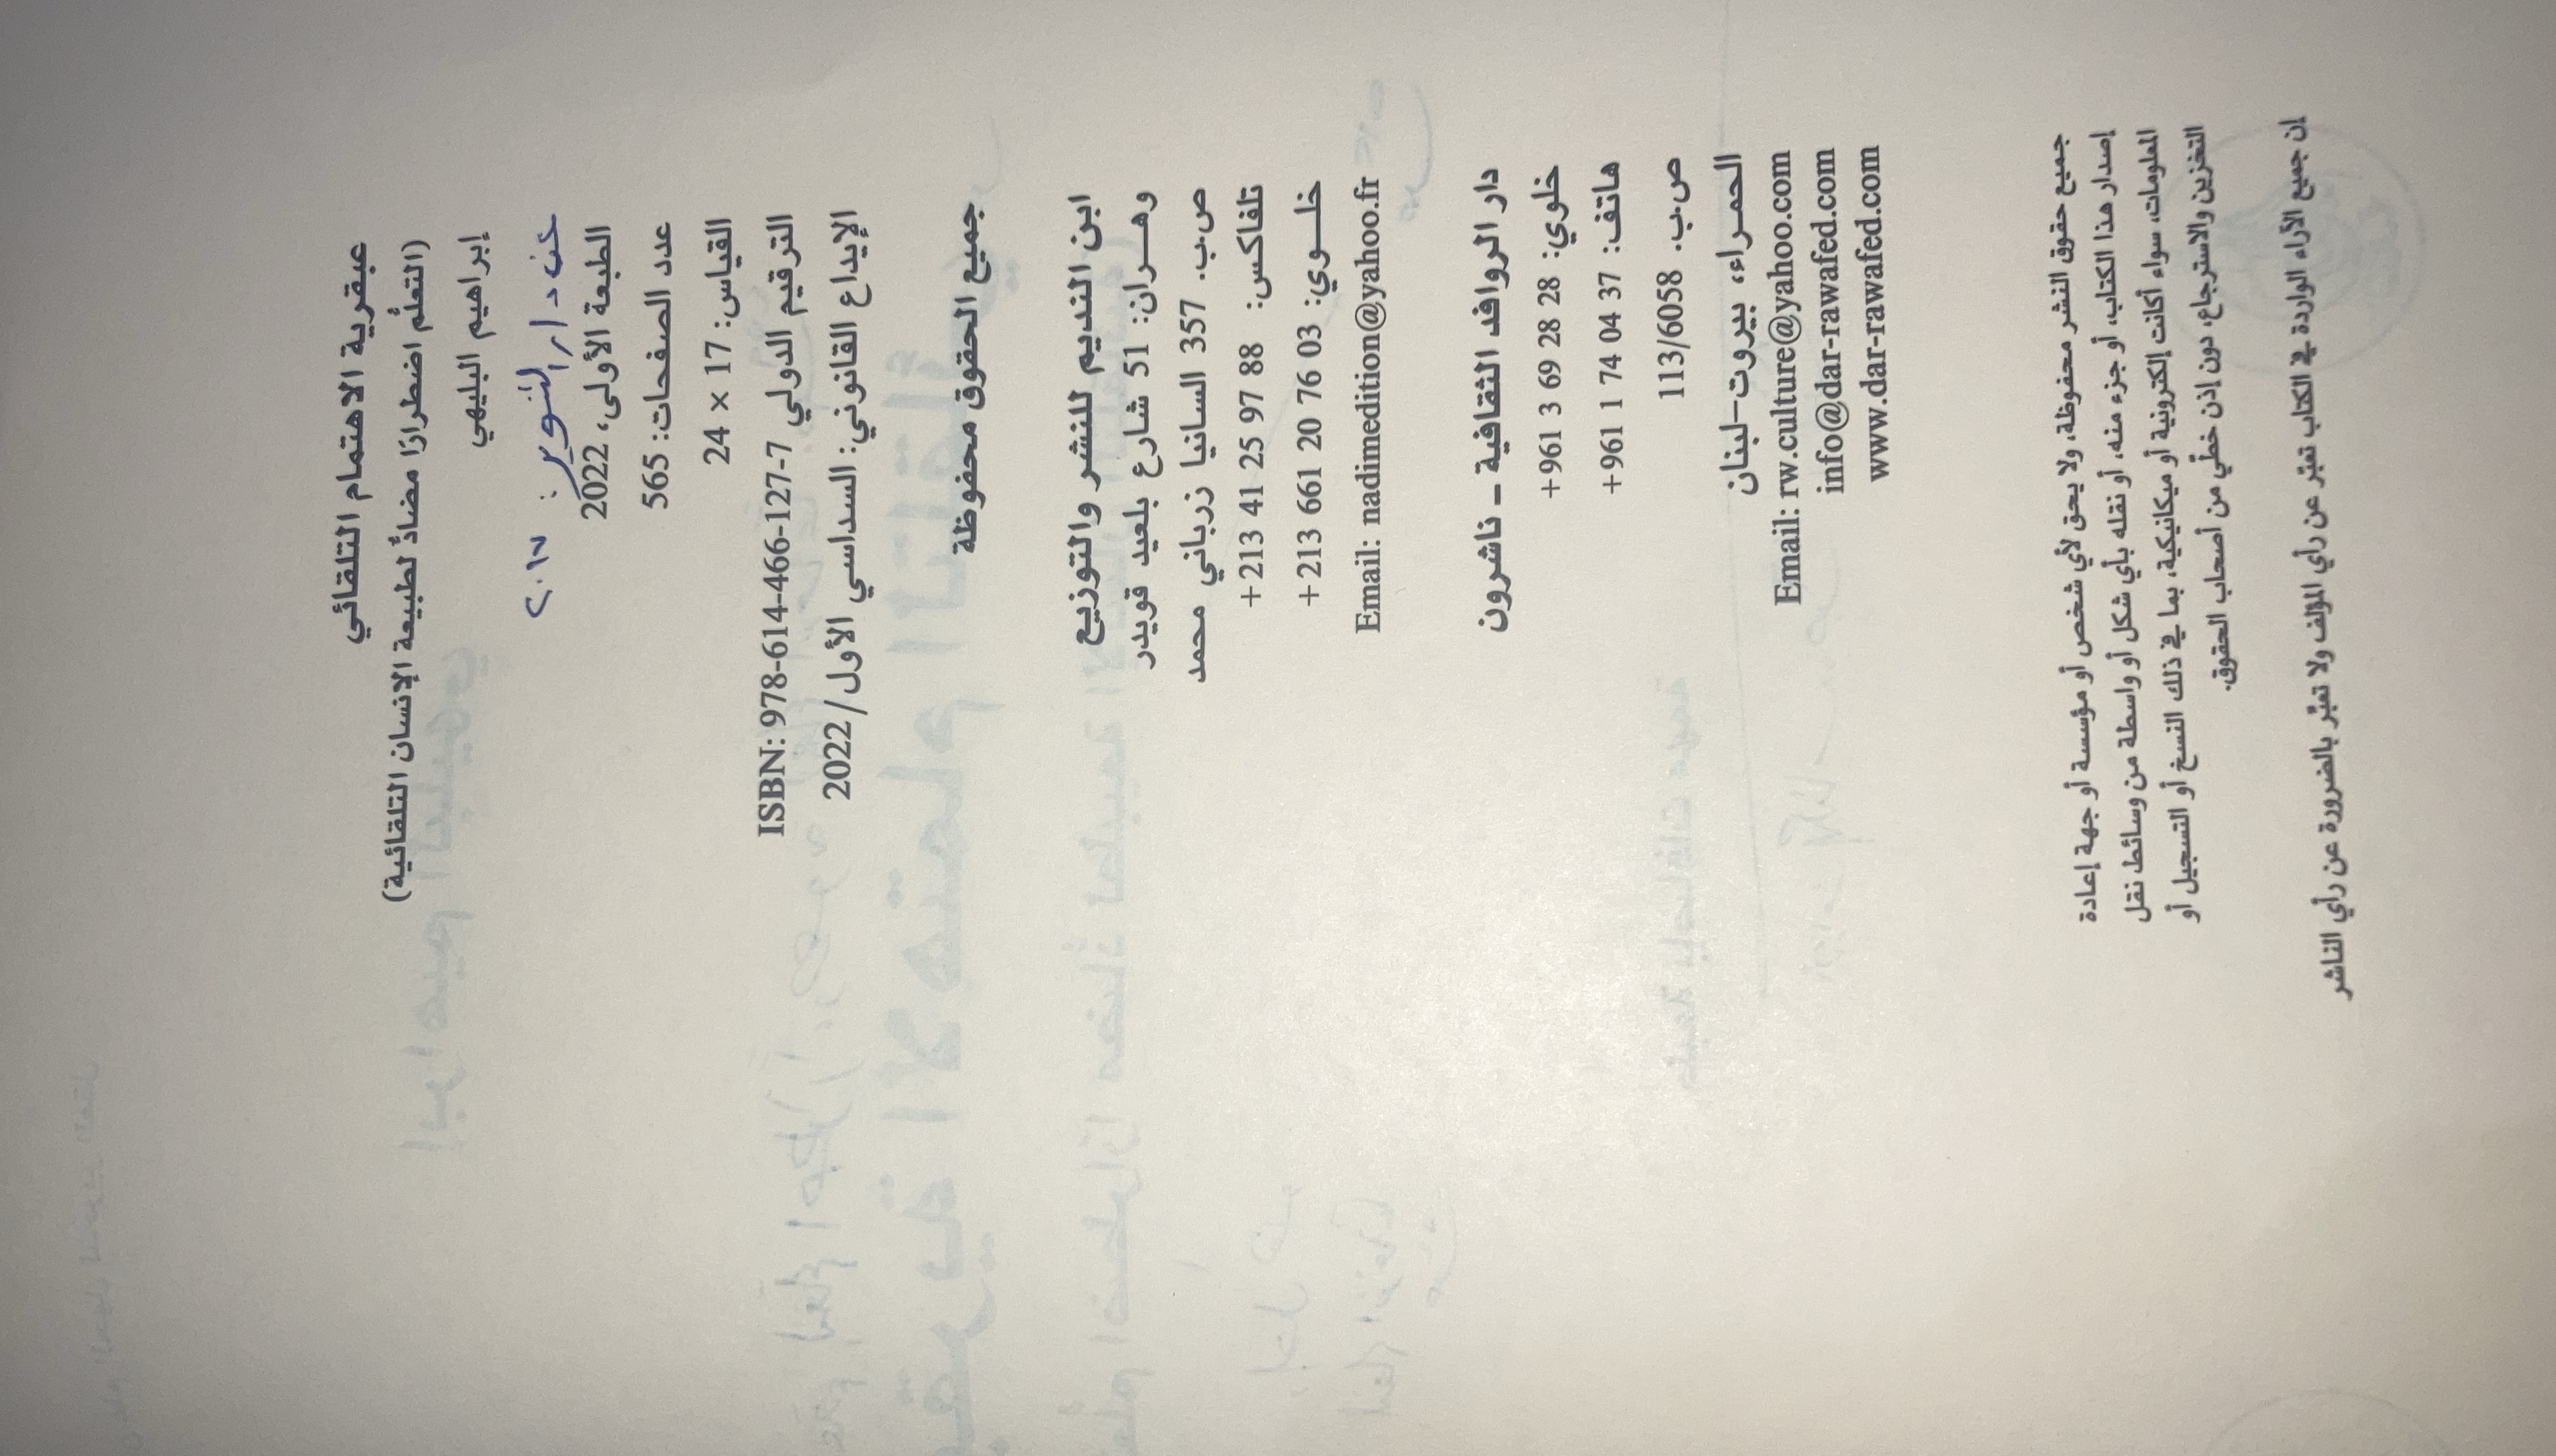 عبقرية الاهتمام التلقائي
(التعلُّم اضطرارًا مضادٌّ لطبيعة الإنسان التلقائية)
إبراهيم البليهي
عن دار التنوير : ٢٠١٧
الطبعة الأولى، 2022
عدد الصفحات: 565
القياس: 17 × 24
الترقيم الدولي ISBN: 978-614-466-127-7
الإيداع القانوني: السداسي الأول/ 2022
جميع الحقوق محفوظة
ابن النديم للنشر والتوزيع
وهــران: 51 شارع بلعيد قويدر
ص.ب. 357 السانيا زرباني محمد
تلفاكس: +213 41 25 97 88
خلــوي: +213 661 20 76 03
Email: nadimedition@yahoo.fr
دار الروافد الثقافية – ناشرون
خلوي: +961 3 69 28 28
هاتف: +961 1 74 04 37
ص.ب. 113/6058
الحمـراء، بيروت-لبنان
Email: rw.culture@yahoo.com
info@dar-rawafed.com
www.dar-rawafed.com
جميع حقوق النشر محفوظة، ولا يحق لأي شخص أو مؤسسة أو جهة إعادة
إصدار هذا الكتاب، أو جزء منه، أو نقله بأي شكل أو واسطة من وسائط نقل
المعلومات، سواء أكانت إلكترونية أو ميكانيكية، بما في ذلك النسخ أو التسجيل أو
التخزين والاسترجاع، دون إذن خطّي من أصحاب الحقوق.
إن جميع الآراء الواردة في الكتاب تعبّر عن رأي المؤلف ولا تعبّر بالضرورة عن رأي الناشر